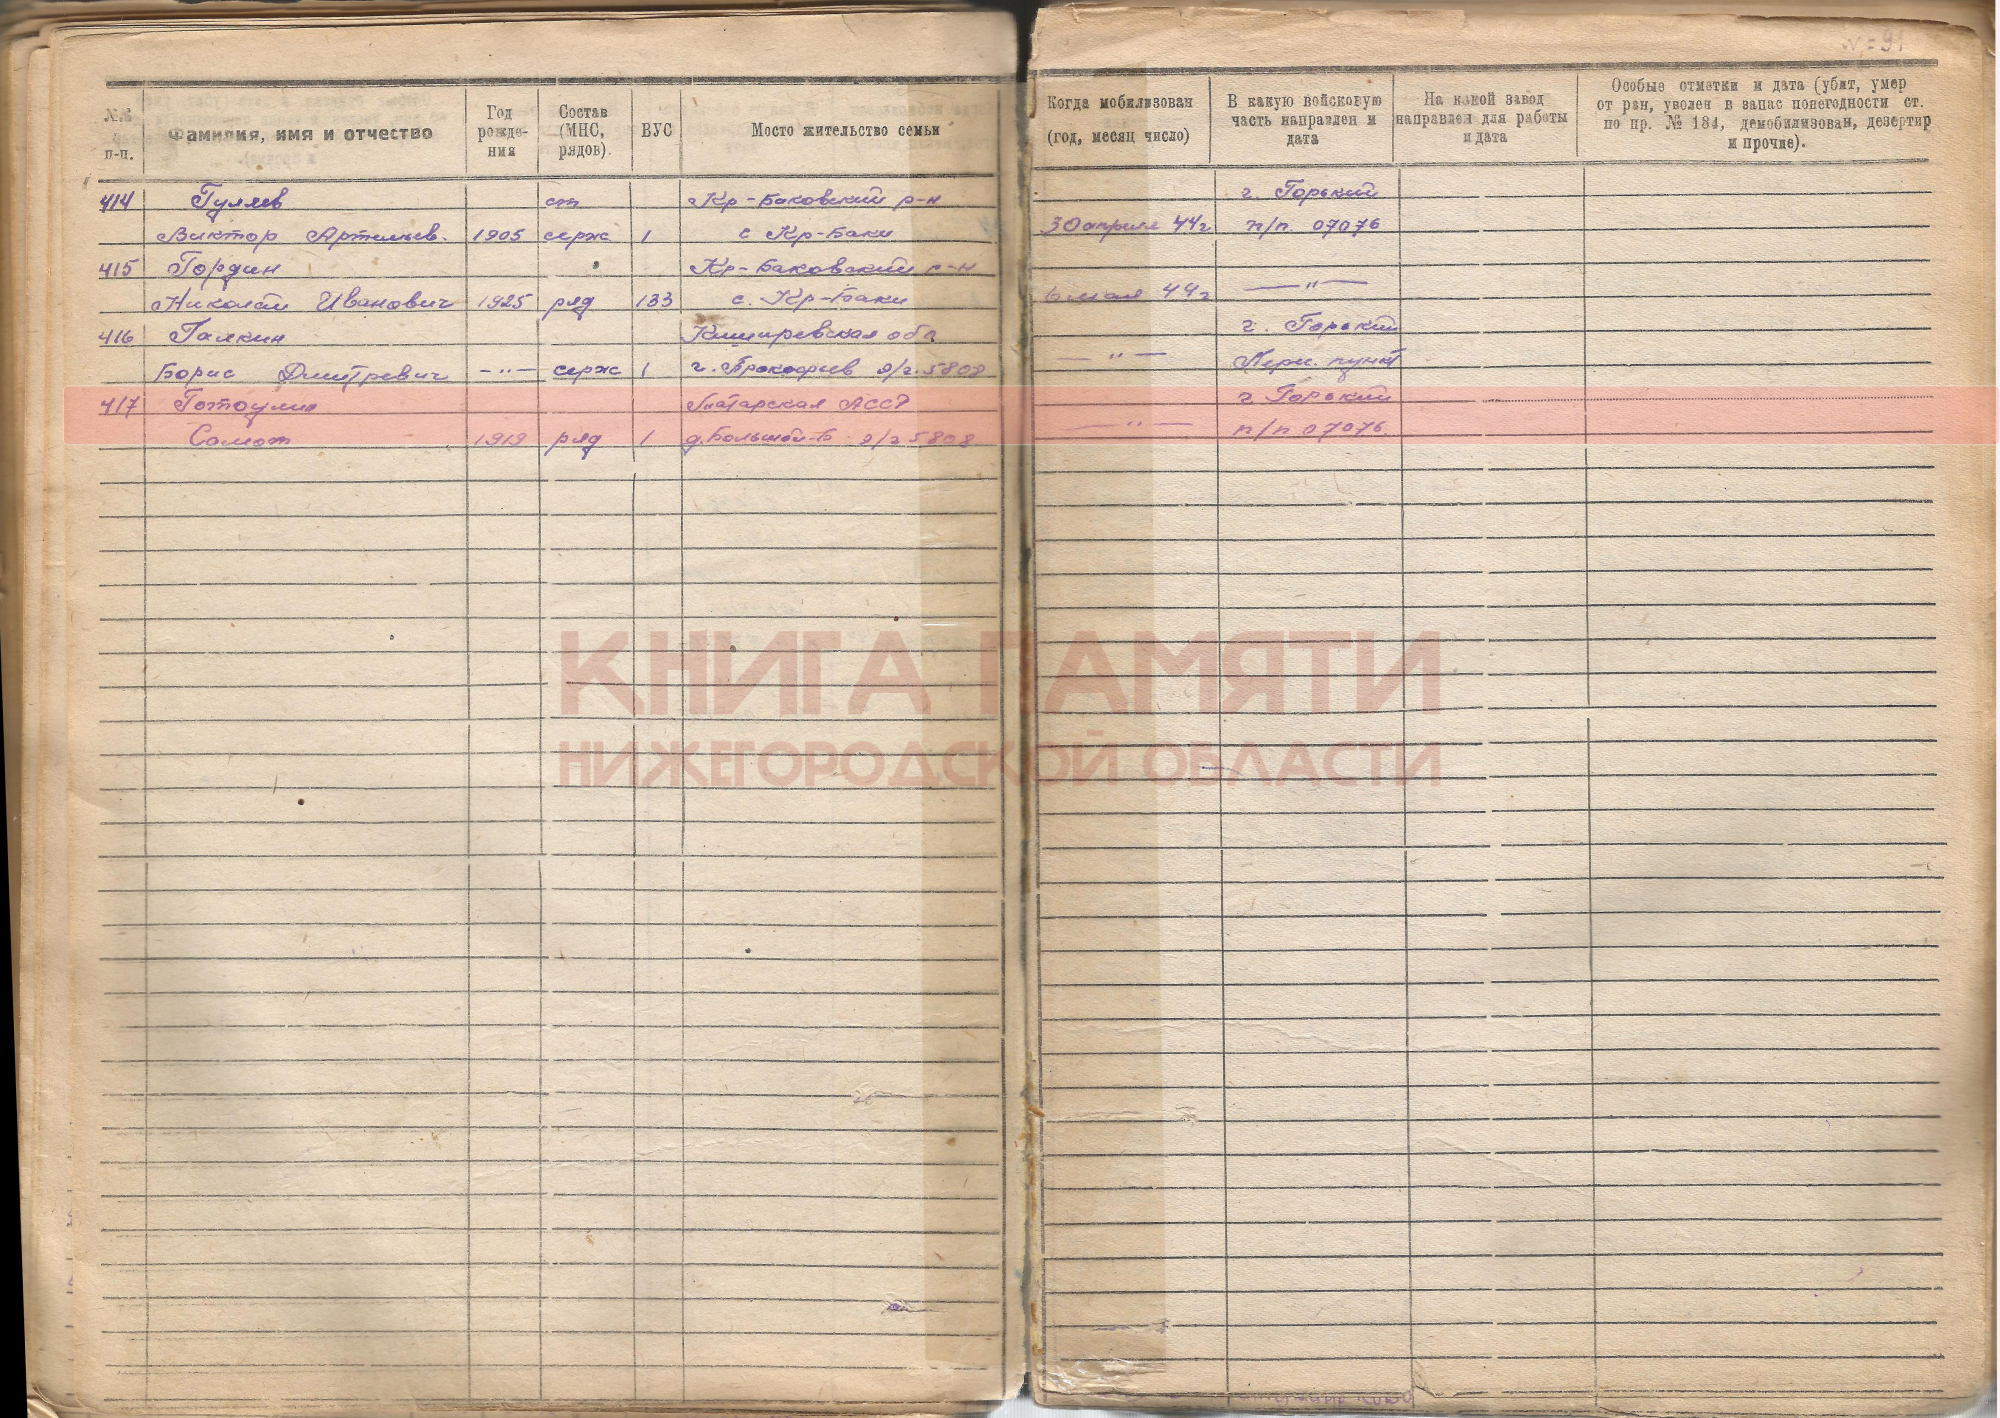 №№ п-п.
Фамилия, имя и отчество
Год рожде-ния
Состав (МНС, рядов).
ВУС
Место жительство семьи
Когда мобилизован (год, месяц число)
В какую войсковую часть направлен и дата
На какой завод направлен для работы и дата
Особые отметки и дата (убит, умер от ран, уволен в запас понегодности ст. по пр. № 184, демобилизован, дезертир и прочие).
414 Гуляев ст Кр-Баковский р-н г. Горький
Виктор Артемьев. 1905 серж 1 с Кр-Баки 30 апреля 44г п/п 07076
415 Гордин Кр-Баковский р-н
Николай Иванович 1925 ряд 133 с. Кр-Баки 6 мая 44г — " —
416 Галкин обл г. Горький
Борис Дмитревич — " — серж 1 г. Прокофьев э/г. 5808 — " — пункт
417 Татарская АССР г. Горький
1919 ряд 1 д. Большой-Б э/г 5808 — " — п/п 07076.
КНИГА ПАМЯТИ
НИЖЕГОРОДСКОЙ ОБЛАСТИ